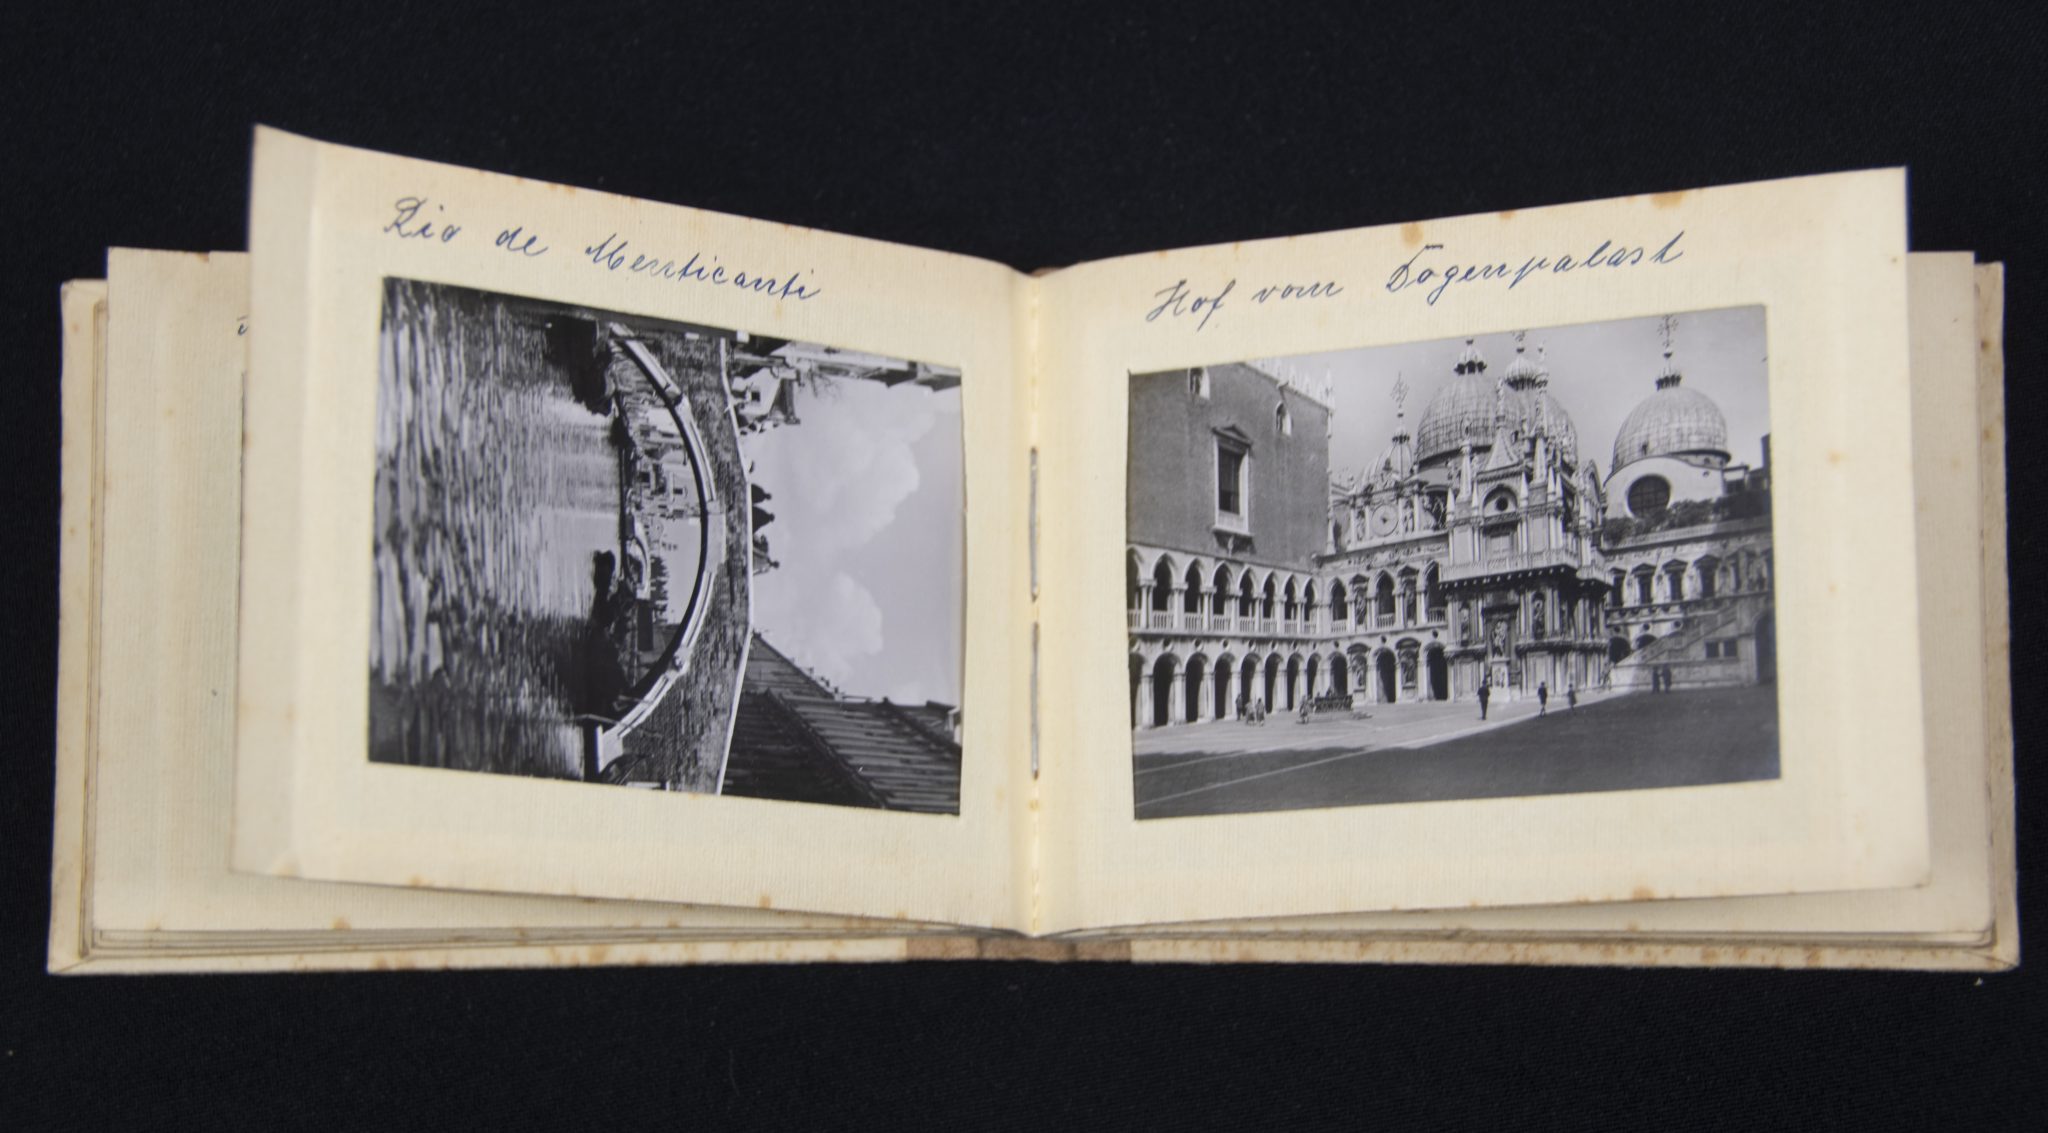 Rio de Menticanti
Hof vom Dogenpalast